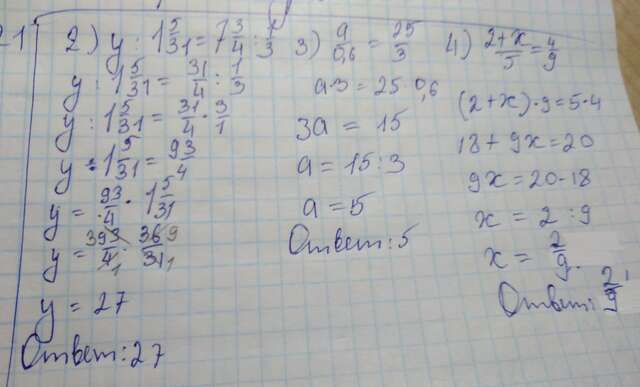 21
2) y : 1 5/31 = 7 3/4 : 1/3
y : 1 5/31 = 31/4 : 1/3
y : 1 5/31 = 31/4 · 3/1
y : 1 5/31 = 93/4
y = 93/4 · 1 5/31
y = 3 93/4 1 · 36 9/31 1
y = 27
Ответ: 27
3) a/0,6 = 25/3
a·3 = 25·0,6
3a = 15
a = 15:3
a = 5
Ответ: 5
4) 2+x/5 = 4/9
(2+x)·9 = 5·4
18+9x = 20
9x = 20-18
x = 2:9
x = 2/9.
Ответ: 2/9